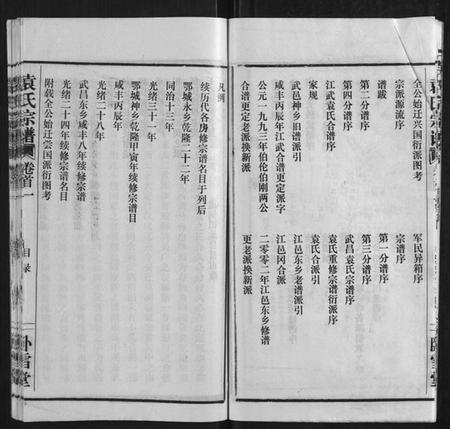 全公始迁兴国衍派图考
军民异籍序
宗派源流序
宗谱序
谱跋
第一分谱序
第二分谱序
第三分谱序
第四分谱序
武昌袁氏宗谱序
江武袁氏合谱序
袁氏重修宗谱衍派序
家规
袁氏合派引
武邑神乡旧谱派引
江邑东乡老谱派引
咸丰丙辰年江武合谱更定派字
江邑冈合派
公元一九九三年伯伦伯刚两公
二零零二年江邑东乡修谱
合谱更定老派换新派
更老派换新派
凡例
续历代各房修宗谱名目于列后
鄂城永乡乾隆二十二年
同治十三年
光绪三十一年
鄂城神乡乾隆甲寅年续修宗谱目
咸丰丙辰年
光绪二十八年
武昌东乡咸丰八年续修宗谱
光绪二十四年续修宗谱名目
附载全公始迁尝国派衍图考
袁氏宗谱
卷首一
目录
卧雪堂